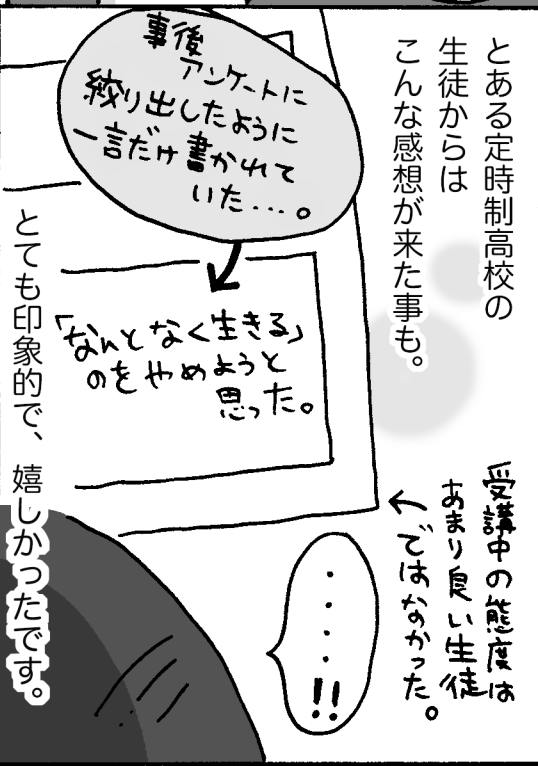 とある定時制高校の
生徒からは
こんな感想が来た事も。
事後
アンケートに
絞り出したように
一言だけ書かれて
いた・・・。
「なんとなく生きる」
のをやめようと
思った。
受講中の態度は
あまり良い生徒
ではなかった。
・・・・!!
とても印象的で、嬉しかったです。